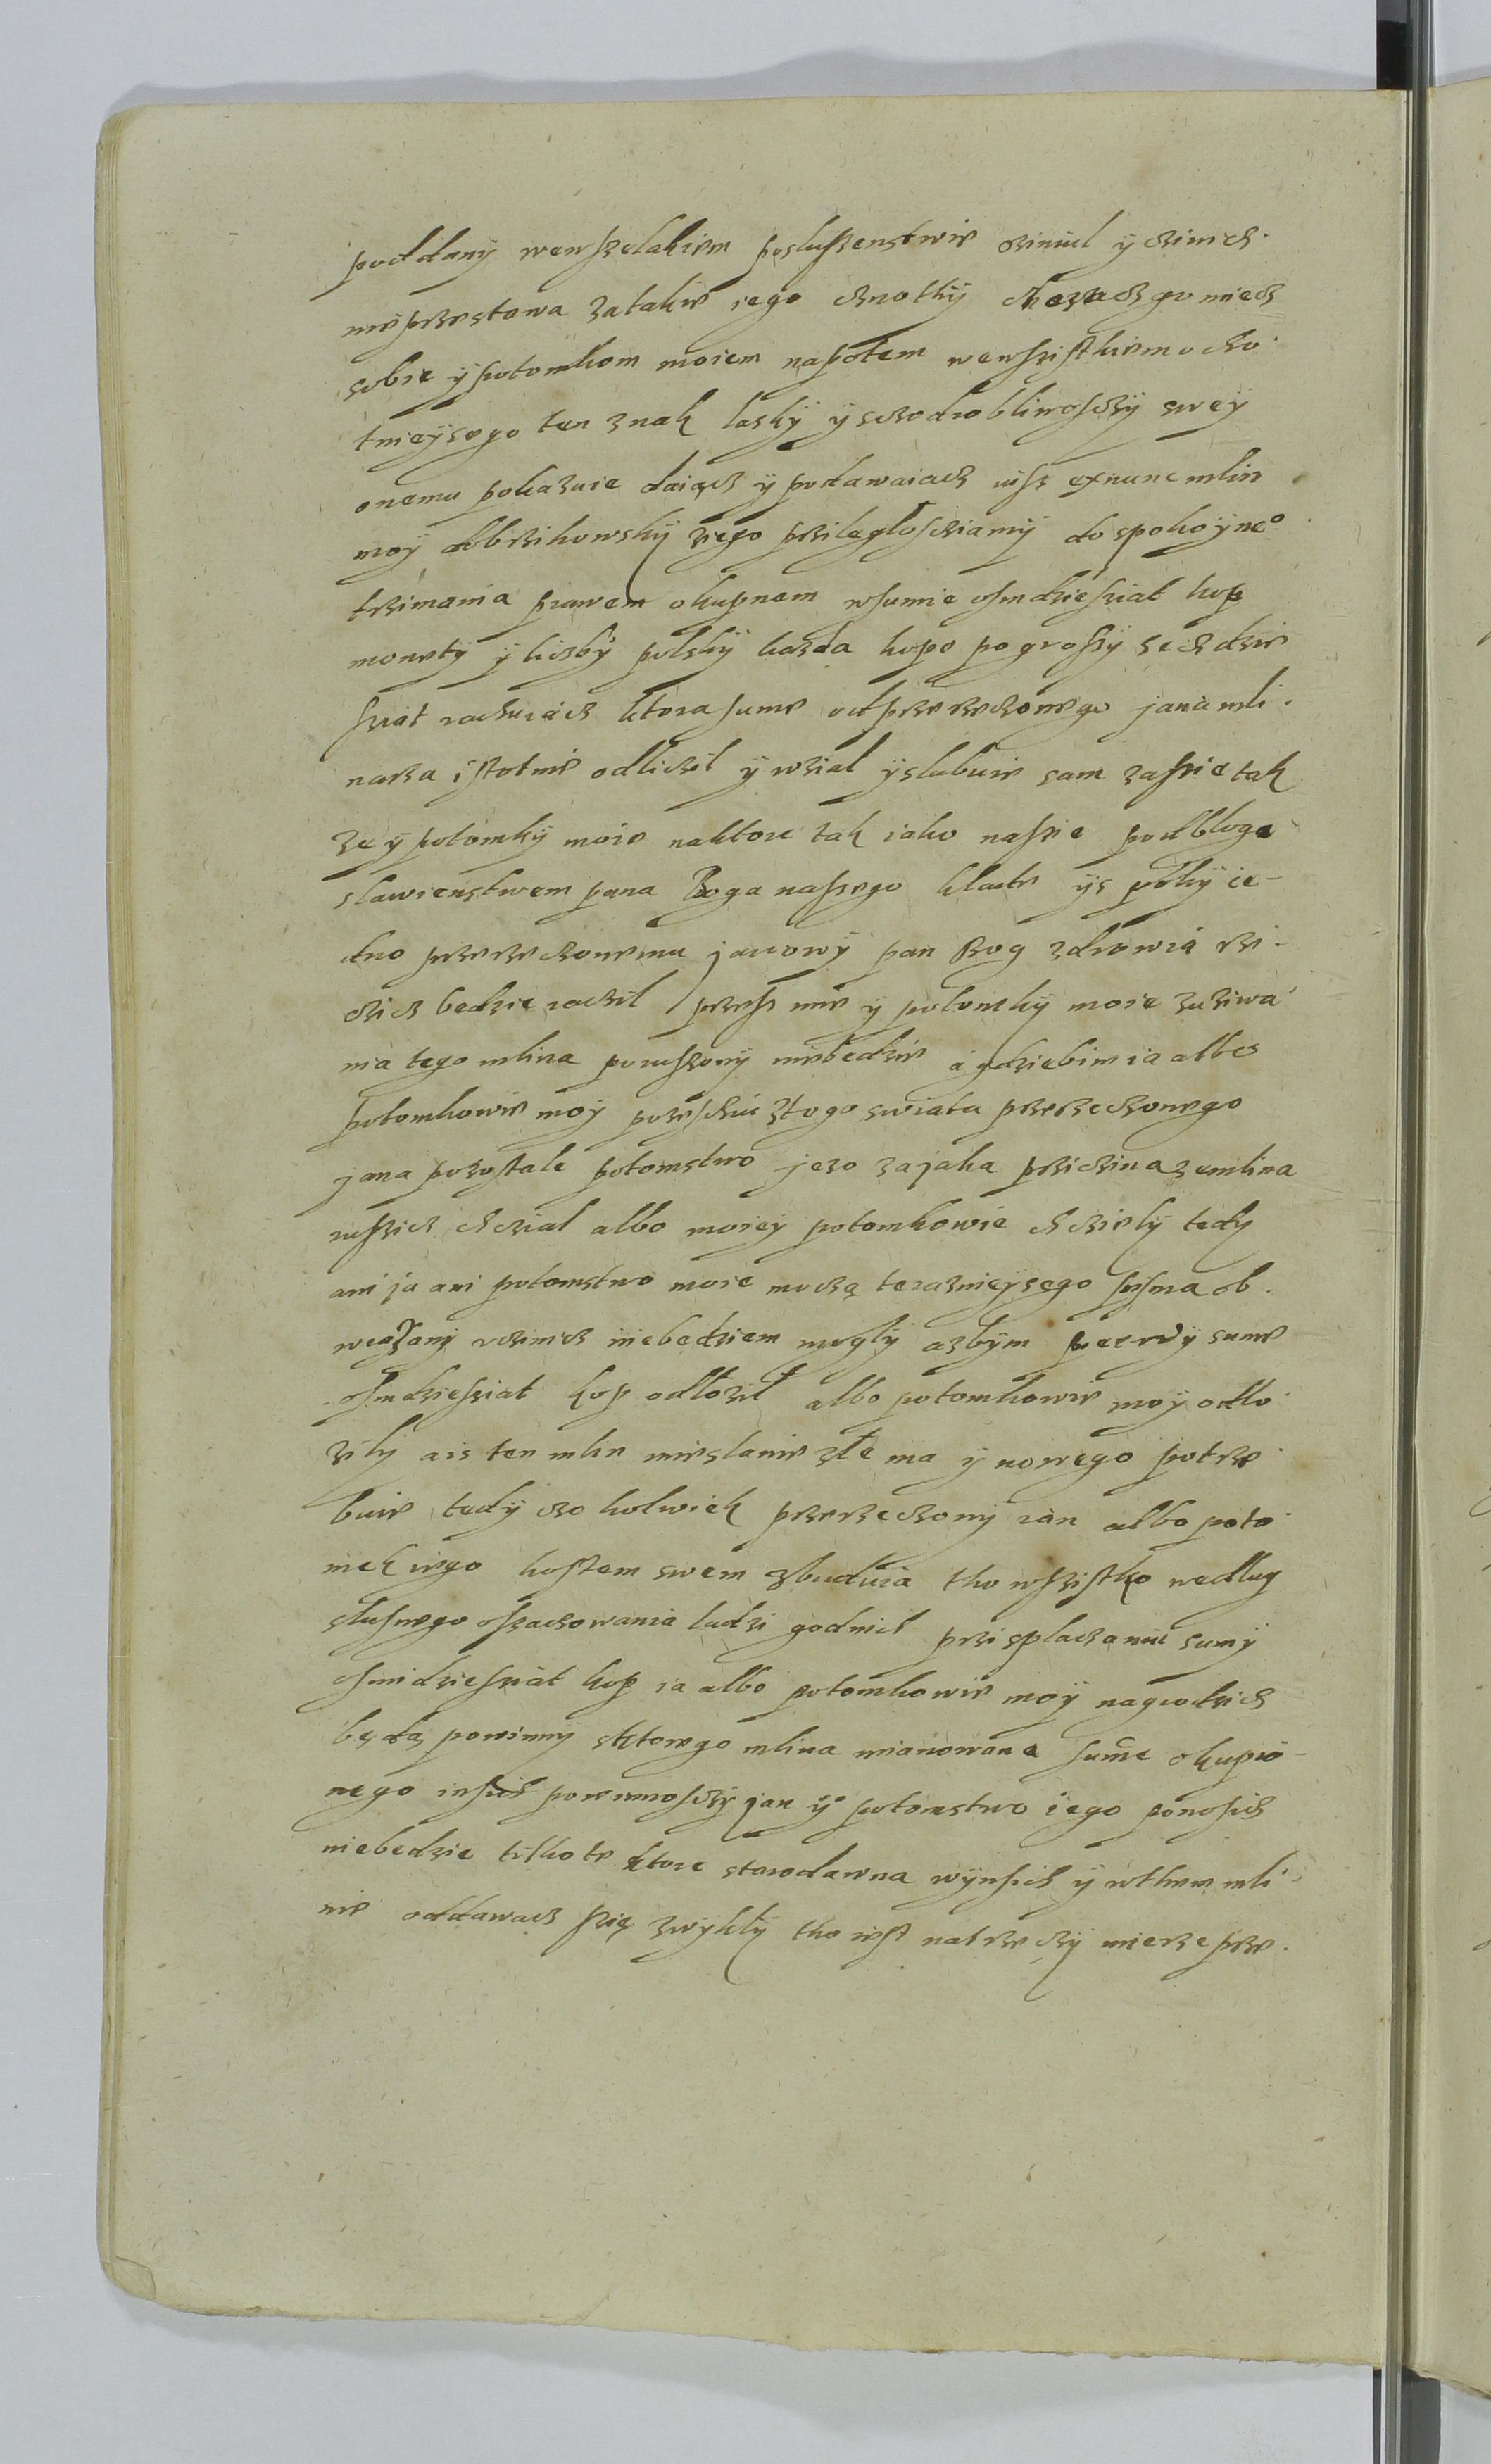 poddany wewszelakiem posluszenstwie cziniul ÿ czinicz
nieprzestawa zatakie iego cznothÿ chczacz go miecz
sobie ÿ potomkom moiem napotem wewszistkiem ocho
tnieÿsego ten znak laskÿ ÿ sczodrobliwosczÿ sweÿ
onemu pokazuie daiącz ÿ podawaiacz iusz exnunc mlin
moÿ dobrzikowskÿ ziego przileglosciamÿ do spokoÿne°
trzimania prawem okupnem wsumie osmdziesziat kop
monetÿ ÿ liczbÿ polskÿ kazda kope po groszÿ seczdzie
sziat rachuiacz ktora sume odprzerzeczonego jana mli
narza istotnie odliczil ÿ wzial ÿ slubuie sam zaszie tak
ze ÿ potomkÿ moie naktore tak iako naszie pod bloga
slawienstwem pana Boga naszego klade ÿs pokÿ ie-
dno przerzeczonemu janowÿ pan Bog zdrowia zi-
czicz bedzie raczil przesz mie ÿ potomkÿ moie zuziwa
nia tego mlina poruszonÿ niebedzie a gdziebim ia albo
potomkowie moÿ pozesciu ztego swiata przerzeczonego
jana pozostale potomstwo jezo zajaka prziczina zemlina
ruszicz chczial albo moieÿ potomkowie chczielÿ tedy
ani ja ani potomstwo moie moczą terazniejsego pisma ob
wiązanÿ uczinicz niebedziem moglÿ azbÿm pierwÿ sume
osmdziesziat kop odłoził albo potomkowie moÿ odlo
zilÿ ais ten mlin mieslanie złe ma ÿ nowego potrze
buie tedÿ czokolwiek przerzeczony ian albo poto
mek iego kostem swem zbuduia tho wszistko wedlug
slusnego oszaczowania ludzi godnich prziesplaczaniu sumÿ
osmidziesziat kop ia albo potomkowie moÿ nagrodzicz
będą powinnÿ sktorego mlina mianowana sume okupio-
nego inszich powinnosczÿ jan ÿ potomstwo iego ponosicz
niebedzie tilko te ktore starodawna wÿnszich ÿ wthem mli
nie oddawacz szię zwÿklÿ tho iest natrzeczÿ mierze prze